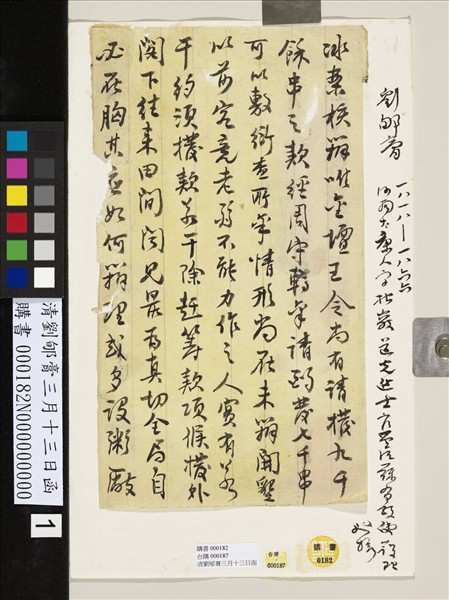 劉郇膏
一八一八—一八六六
河南太康人字松巖道光進士官至江蘇布政使護理
巡撫
案核辦唯金壇王令尚有請撥九千
餘串之款經周守轉請酌發七千串
可以敷衍查所稟情形尚在未辦開墾
以前究竟老弱不能力作之人實有若
干約須撥款若干除趕籌款項候撥外
閣下往來田間閱見最為真切全局自
必在胸其應如何辦理或多設粥廠
清劉郇膏三月十三日函
購書 000182N000000000
1
購書 000182
台購 000187
清劉郇膏三月十三日函
台購
000187
購書
0182